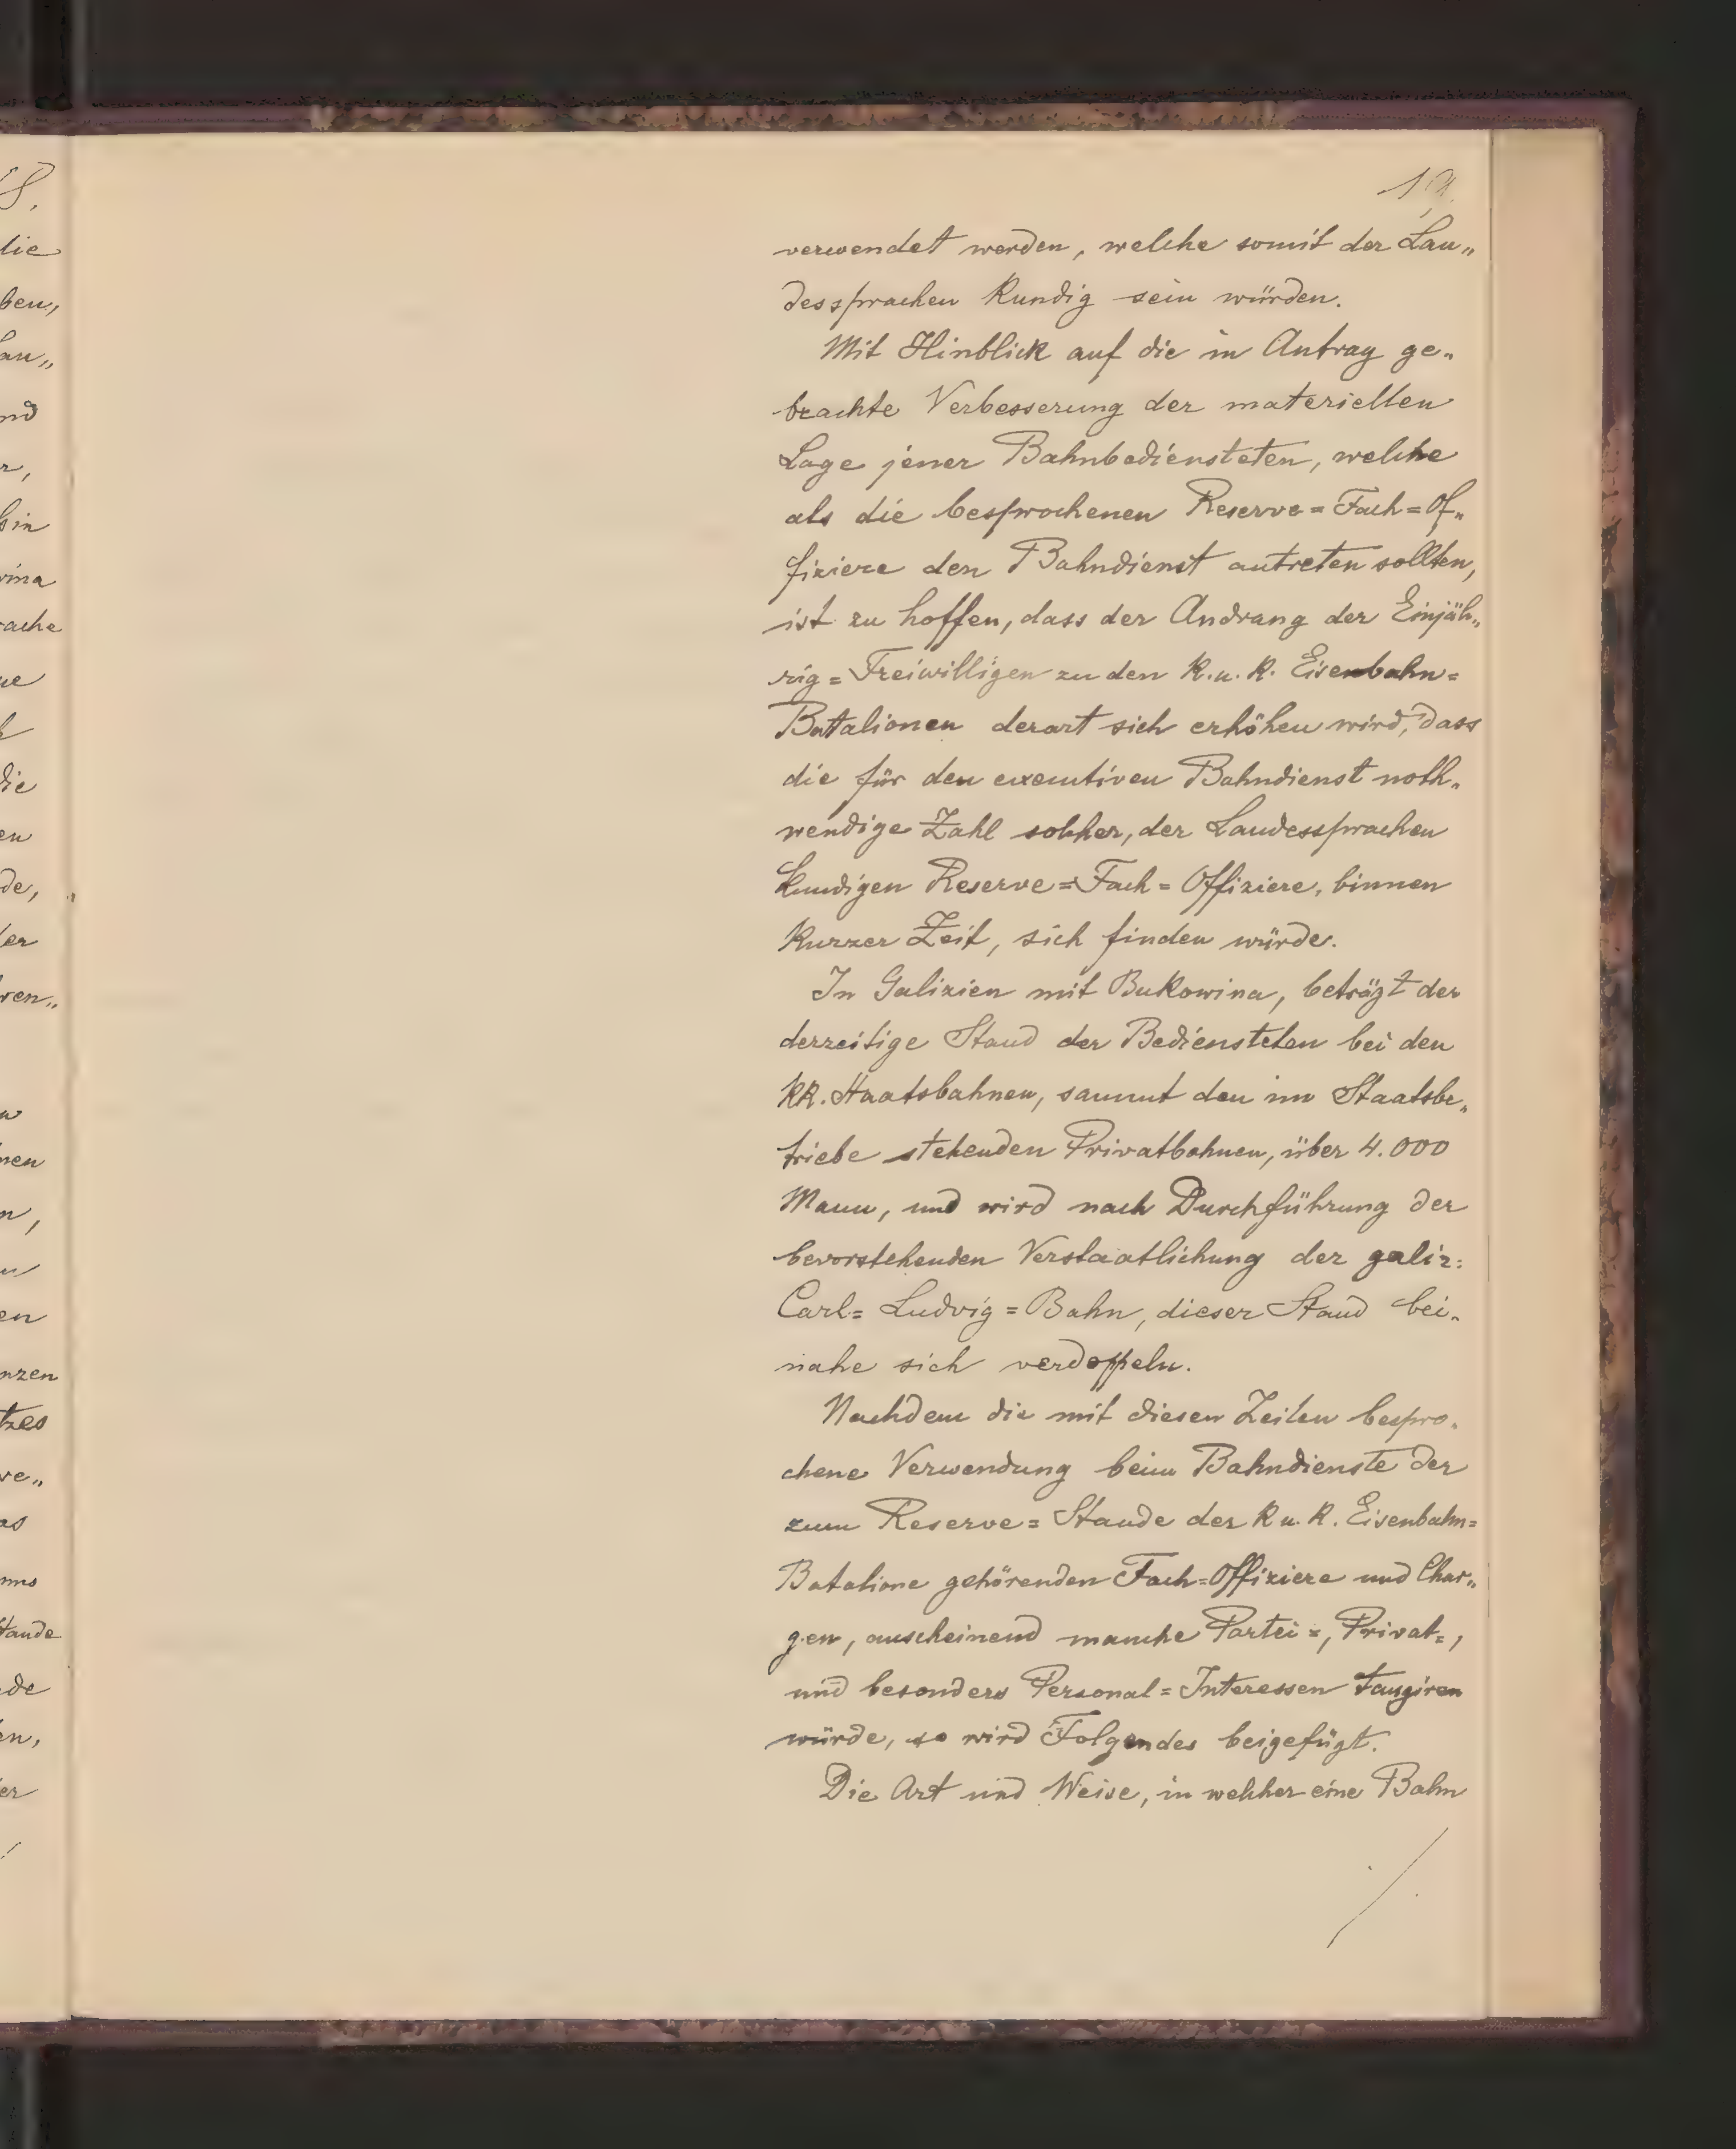 18.
19.
verwendet werden, welche somit der Lan„
dessprachen kundig sein würden.
Mit Hinblick auf die in Antrag ge„
brachte Verbesserung der materiellen
Lage jener Bahnbediensteten, welche
als die besprochenen Reserve=Fach=Of„
fiziere den Bahndienst antreten sollten,
ist zu hoffen, dass der Andrang der Einjäh„
rig=Freiwilligen zu den k.u.k. Eisenbahn=
Batalionen derart sich erhöhen wird, dass
die für den executiven Bahndienst noth„
wendige Zahl solcher, der Landessprachen
kundigen Reserve=Fach=Offiziere, binnen
kurzer Zeit, sich finden würde.
In Galizien mit Bukowina, beträgt der
derzeitige Stand der Bediensteten bei den
kk. Staatsbahnen, sammt den im Staatsbe„
triebe stehenden Privatbahnen, über 4.000
Mann, und wird nach Durchführung der
bevorstehenden Verstaatlichung der galiz:
Carl=Ludvig=Bahn, dieser Stand bei„
nahe sich verdoppeln.
Nachdem die mit diesen Zeilen bespro„
chene Verwendung beim Bahndienste der
zum Reserve=Stande der k u. k. Eisenbahn=
Batalione gehörenden Fach=Offiziere und Char„
gen, anscheinend manche Partei=, Privat=,
und besonders Personal=Interessen tangiren
würde, so wird Folgendes beigefügt.
Die Art und Weise, in welcher eine Bahn